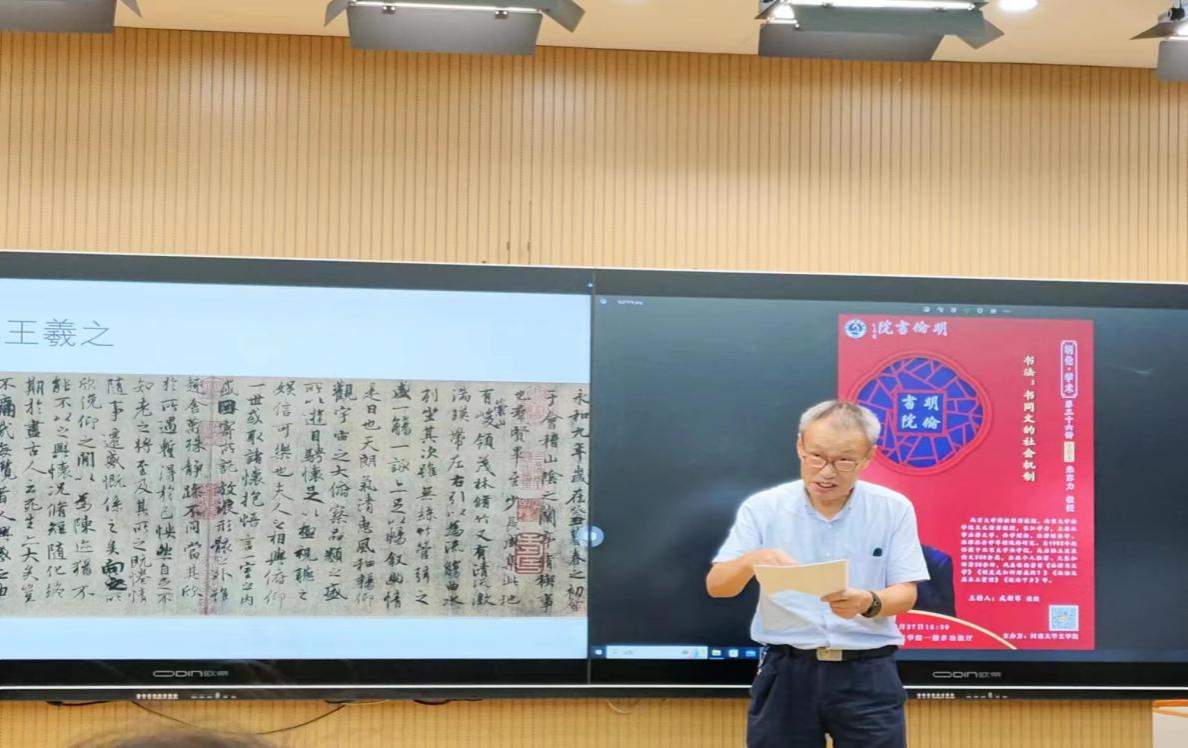 王羲之
永和九年歲在癸丑暮春之初會
于會稽山陰之蘭亭脩稧事
也羣賢畢至少長咸集此地
有崇山峻領茂林脩竹又有清流激
湍暎帶左右引以為流觴曲水
列坐其次雖無絲竹管弦之
盛一觴一詠亦足以暢敘幽情
是日也天朗氣清惠風和暢仰
觀宇宙之大俯察品類之盛
所以遊目騁懷足以極視聽之
娛信可樂也夫人之相與俯仰
一世或取諸懷抱悟言一室之內
或因寄所託放浪形骸之外雖
趣舍萬殊靜躁不同當其欣
於所遇暫得於己怏然自足不
知老之將至及其所之既惓情
隨事遷感慨係之矣向之所
欣俛仰之閒以為陳迹猶不
能不以之興懷況脩短隨化終
期於盡古人云死生亦大矣豈
不痛哉每攬昔人興感之由
明倫書院
明倫
書院
明伦·学术
第三十六讲
书法：书同文的社会机制
教授
主持人：
月27日16:30
学院一楼多功能厅
主办方：河南大学文学院
ODIN欧帝
ODIN欧帝